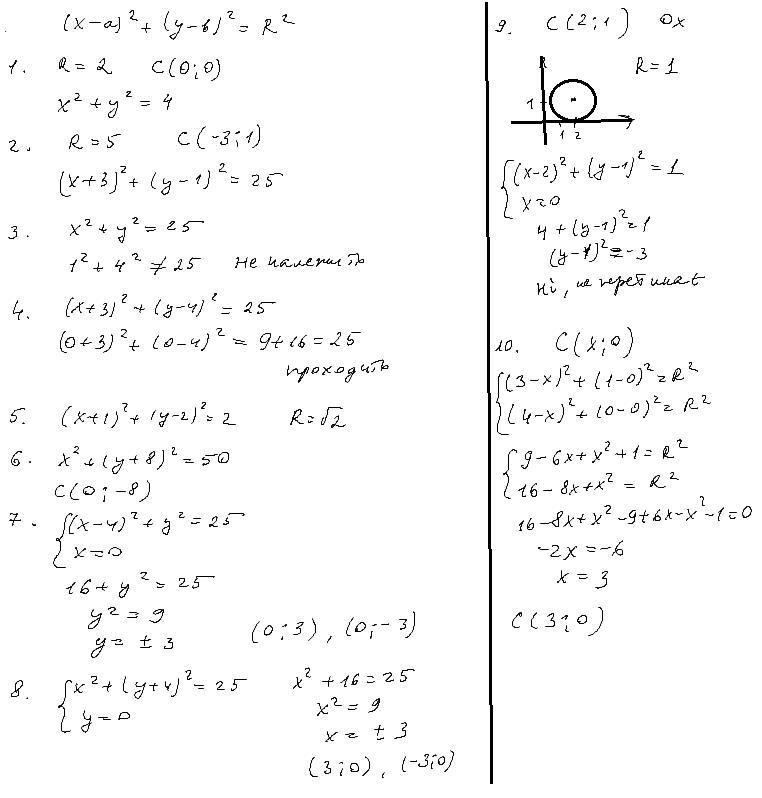 (x-a)² + (y-b)² = R²
1. R = 2 C(0;0)
x² + y² = 4
2. R = 5 C(-3;1)
(x+3)² + (y-1)² = 25
3. x² + y² = 25
1² + 4² ≠ 25 не належить
4. (x+3)² + (y-4)² = 25
(0+3)² + (0-4)² = 9+16 = 25
проходить
5. (x+1)² + (y-2)² = 2 R = √2
6. x² + (y+8)² = 50
C(0;-8)
7. { (x-4)² + y² = 25
x = 0
16 + y² = 25
y² = 9
y = ± 3 (0;3), (0;-3)
8. { x² + (y+4)² = 25 x² + 16 = 25
y = 0 x² = 9
x = ± 3
(3;0), (-3;0)
9. C(2;1) Ox
R = 1
1
1 2
{ (x-2)² + (y-1)² = 1
x = 0
4 + (y-1)² = 1
(y-1)² = -3
ні, не перетинає
10. C(x;0)
{ (3-x)² + (1-0)² = R²
(4-x)² + (0-0)² = R²
{ 9 - 6x + x² + 1 = R²
16 - 8x + x² = R²
16 - 8x + x² - 9 + 6x - x² - 1 = 0
-2x = -6
x = 3
C(3;0)